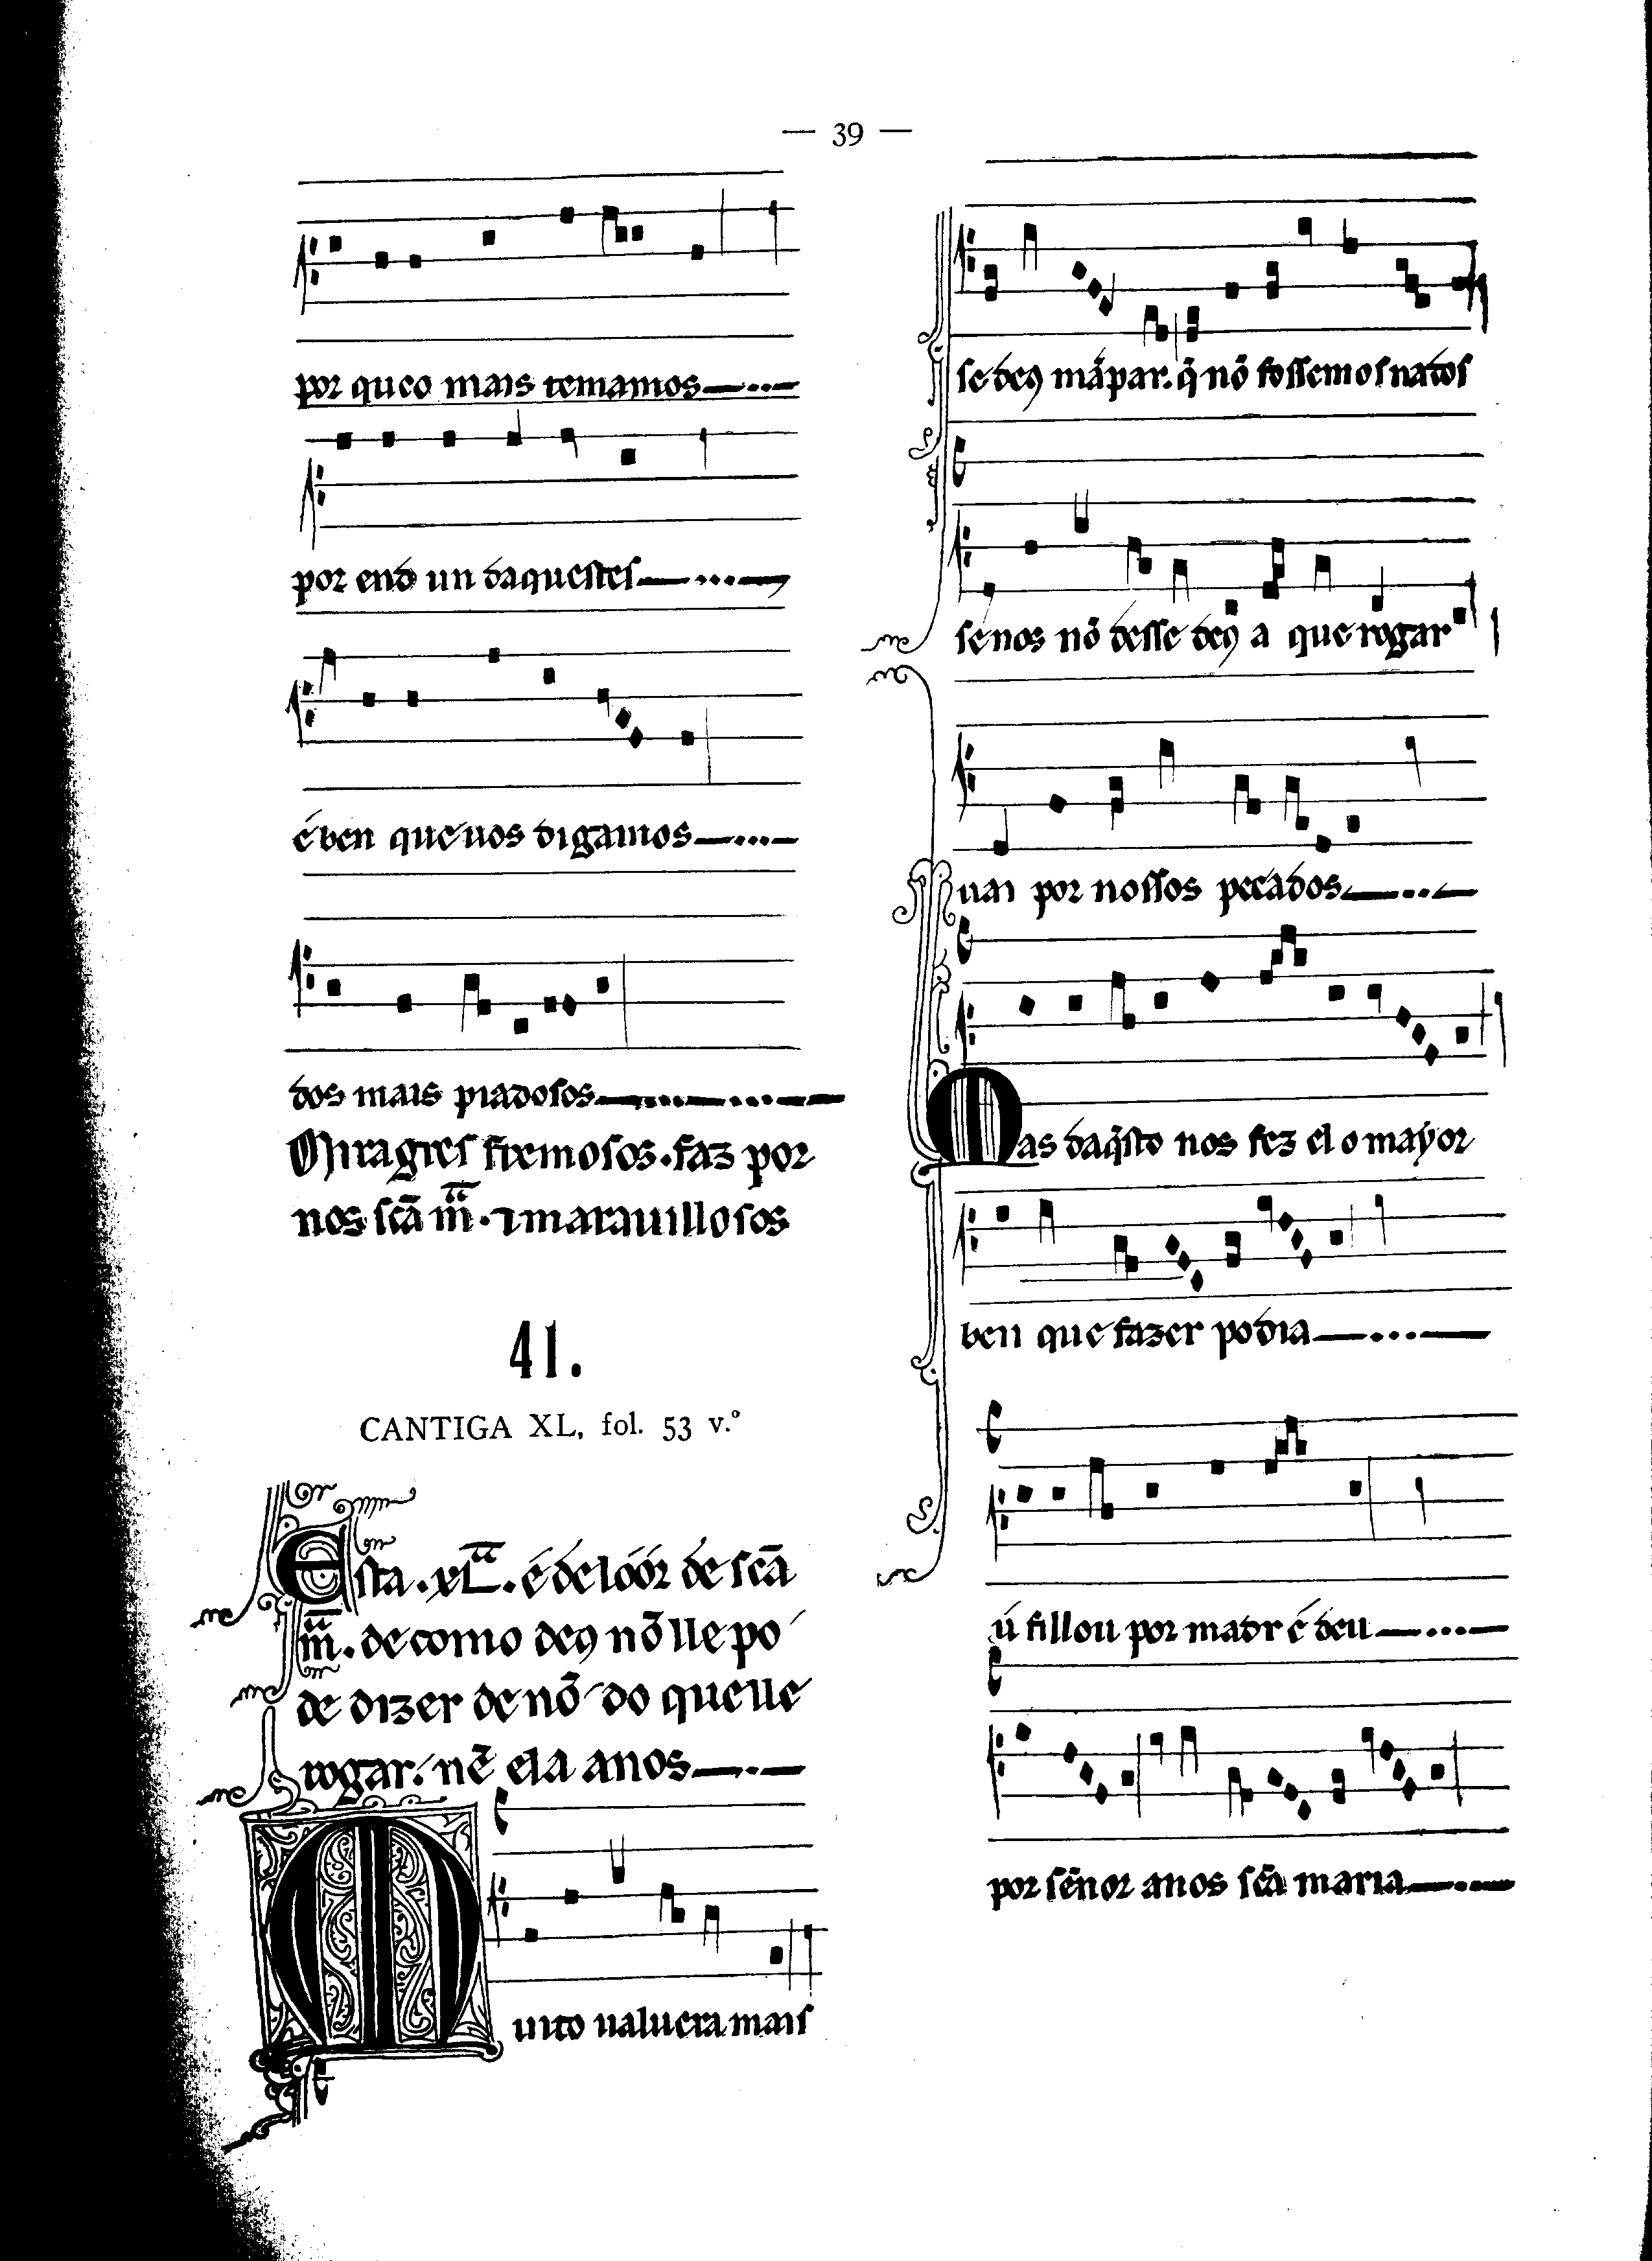 — 39 —
por queo mais temamos
por end un daquestes
é ben que uos digamos
dos mais piadosos
Miragres fremosos. faz por
nos scã m̃. ⁊ marauillosos
41.
CANTIGA XL, fol. 53 v.º
Esta .XL. é de loór de scã
m̃. de como deꝯ nõ lle po
de dizer de nõ do que lle
rogar. nẽ ela a nos
Muito ualuera mais
se deꝯ mãpar. q̃ nõ fossemos nados
se nos nõ desse deꝯ a que rogar
uai por nossos pecados
Mas daq̃sto nos fez el o mayor
ben que fazer podia
ú fillou por madr é deu
por sẽnor a nos scã maria